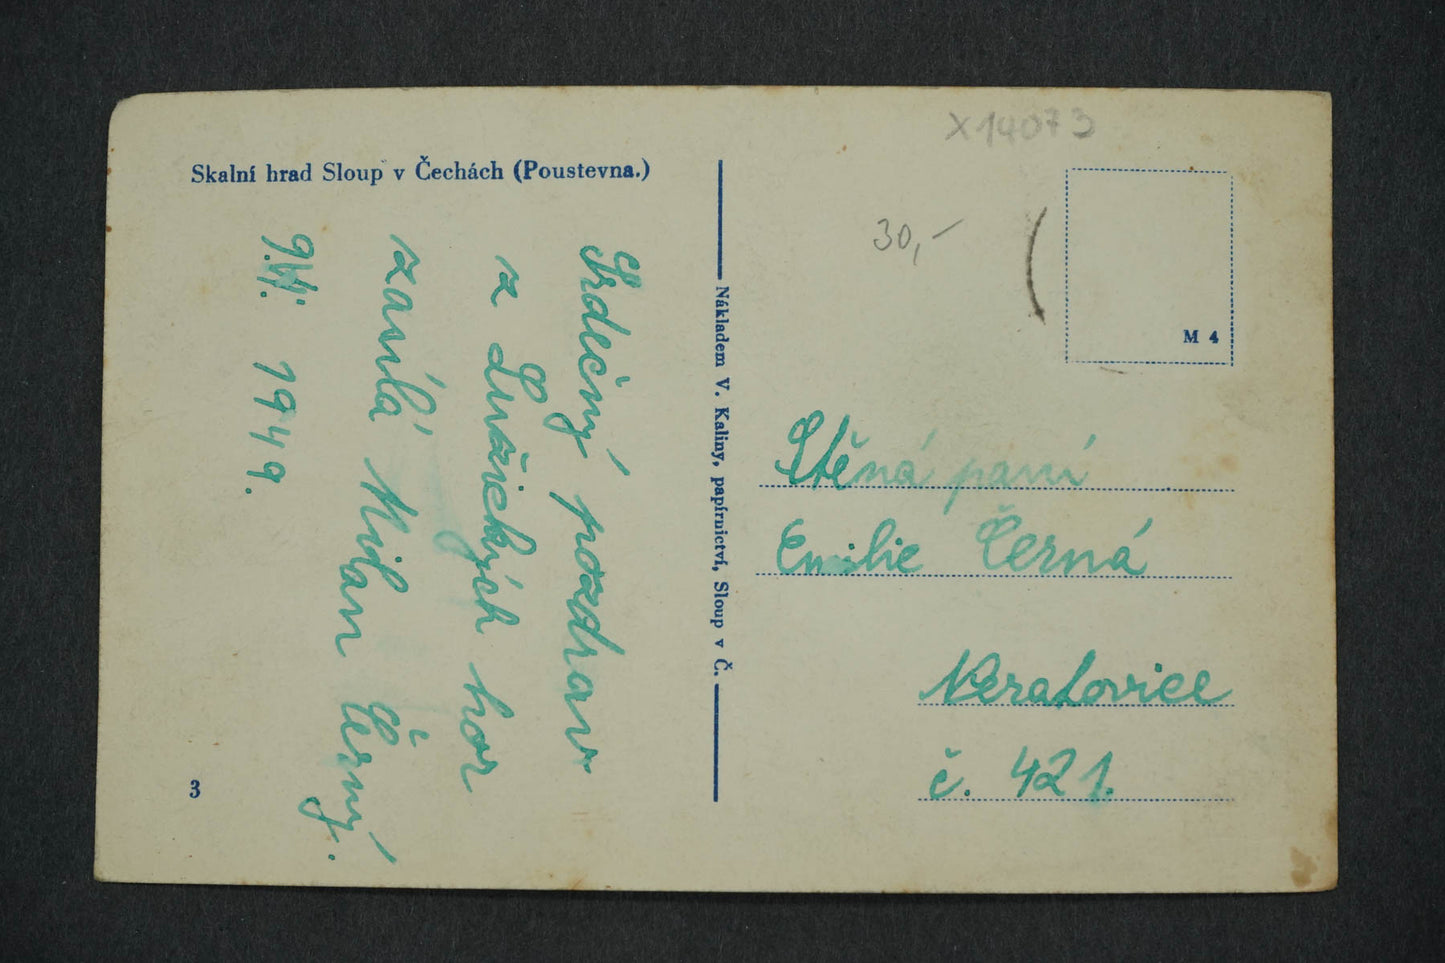 Skalní hrad Sloup v Čechách (Poustevna.)
Srdečný pozdrav
z Lužických hor
zasílá Milan Černý.
9.VI. 1949.
3
Nákladem V. Kaliny, papírnictví, Sloup v Č.
X14073
30,-
M 4
Ctěná paní
Emilie Černá
Neratovice
č. 421.